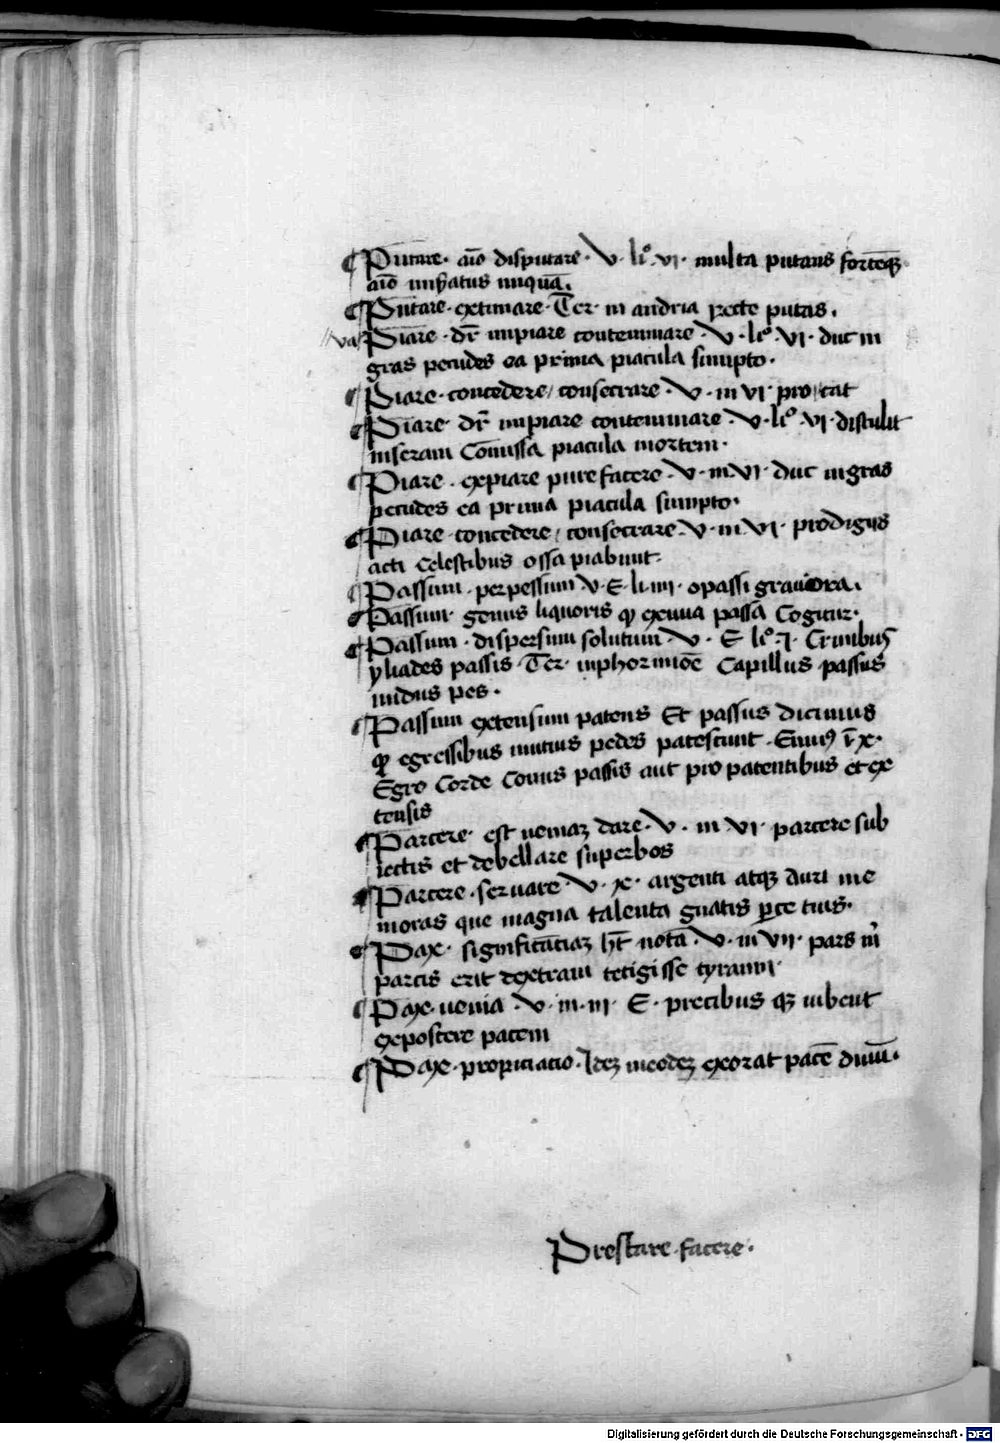 ¶ Putare · aīo disputare · V · li° · vi · multa putans sortēqꝫ
aīo miẜatus iniquā .
¶ Putare · extimare · Ter · in andria recte putas .
va¶ Piare · dr̄ impiare contemnare · V · li° · vi · duc ni
gras pecudes ea prima piacula sumpto ·
¶ Piare · concedere / consecrare · V · in vi · pro/cat
¶ Piare · dr̄ impiare contemnare · V · li° · vi distulit
inseram Comissa piacula mortem ·
¶ Piare · expiare pure facere · V · in vi · duc nigras
pecudes ea prima piacula sumpto ·
¶ Piare · concedere / consecrare · V · in vi · prodigijs
acti Celestibus ossa piabunt ·
¶ Passum · perpessum V · E · li · iiii · o passi grauiora .
¶ Passum · genus liquoris qꝫ ex uua passa Cogitur ·
¶ Passum · dispersum solutum · V · E li° · i · Crinibus
yliades passis · Ter · in phormiōe Capillus passus
nudus pes ·
¶ Passum extensum patens Et passus dicimus
qꝫ egressibus mutuis pedes patescunt ·
Egro Corde Comis passis aut pro patentibus et ex
tensis
¶ Parcere · est ueniaꝫ dare · V · in vi · parcere sub
iectis et debellare superbos
¶ Parcere · seruare · V · x · argenti atqꝫ auri me
moras que magna talenta gnatis ꝑce tuis ·
¶ Pax · significātiaꝫ ht̄ · notā · V · in vii · pars m̄
pacis erit dextram tetigisse tyranni ·
¶ Pax · uenia · V · in · iii · E · precibus qꝫ iubent
exposcere pacem
¶ Pax · propitiatio · Ideꝫ in eodeꝫ exorat pacē diuū ·
Prestare · facere ·
Digitalisierung gefördert durch die Deutsche Forschungsgemeinschaft - DFG